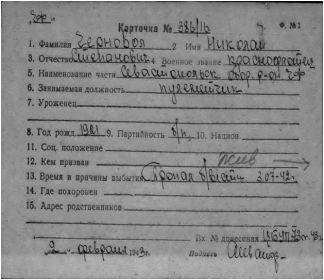 "ЧФ"
Карточка № 386/16 Ф. № 1
1. Фамилия Черновол 2. Имя Николай
3. Отчество Степанович 4. Военное звание краснофлотец
5. Наименование части Севастопольск. обор. р-он ЧФ
6. Занимаемая должность пулеметчик
7. Уроженец
8. Год рожд. 1921 9. Партийность б/п, 10. Национ
11. Соц. положение
12. Кем призван
13. Время и причины выбытия Пропал б/вести 3.07-42г.
14. Где похоронен
15. Адрес родственников
Вх № донесения
"2" февраля 1943г. Подпись